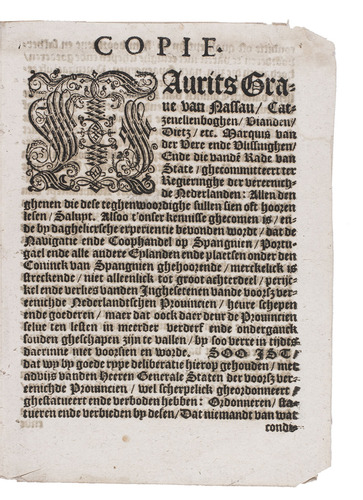 COPIE.
MAurits Gra-
ue van Nassau / Cat-
zenellenboghen / Vianden /
Dietz / etc. Marquis van
der Vere ende Vlissinghen /
Ende die vande Rade van
State / ghecommitteert ter
Regieringhe der vereenich-
de Nederlanden: Allen den
ghenen die dese teghenwoordighe sullen sien oft hooren
lesen / Salupt. Alsoo t'onser kennisse ghecomen is / en-
de by daghelicrsche experientie bevonden wordt / dat de
Navigatie ende Coophandel op Spangnien / Portu-
gael ende alle andere Eylanden ende plaetsen onder den
Coninck van Spangnien ghehoorende / merckelick is
streckende / niet alleenlick tot groot achterdeel / perijc-
kel ende verlies vanden Inghesetenen vande voorsz ver-
eenichde Nederlandtschen Provincien / heure schepen
ende goederen / maer dat oock daer deur de Provincien
selue ten lesten in meerder verderf ende onderganck
souden gheschapen zijn te vallen / by soo verre in tijdts
daerinne niet voorsien en worde. SOO IST /
dat wy by goede rype deliberatie hierop ghehouden / met
advijs vanden Heeren Generale Staten der voorsz ver-
eenichde Provincien / wel scherpelick gheordonneert /
ghestatueert ende verboden hebben: Ordonneren / sta-
tueren ende verbieden by desen / Dat niemandt van wat
condi-